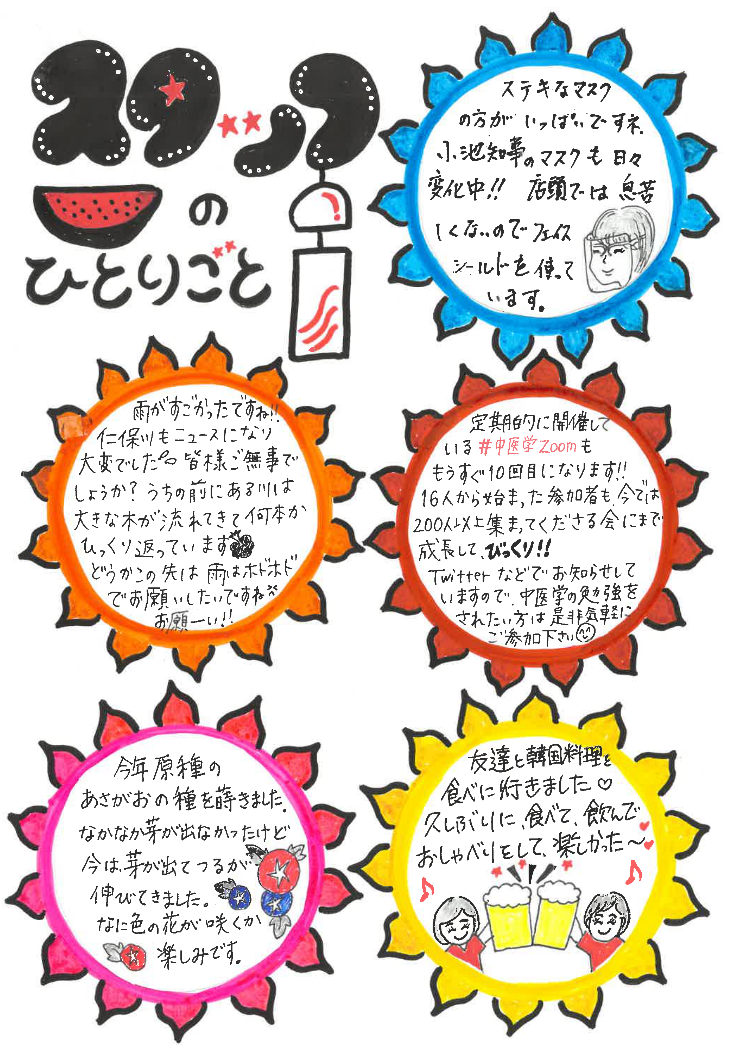 スタッフ
の
ひとりごと
ステキなマスク
の方がいっぱいですネ.
小池知事のマスクも日々
変化中!! 店頭では息苦
しくないのでフェイス
シールドを使って
います。
雨がすごかったですね!!
仁保川もニュースになり
大変でした 皆様ご無事で
しょうか? うちの前にある川は
大きな木が流れてきて何本か
ひっくり返っています
どうかこの先は雨はホドホド
でお願いしたいですね
お願ーい!!
定期的に開催して
いる#中医学Zoomも
もうすぐ10回目になります!!
16人から始まった参加者も、今では
200人以上集まってくださる会にまで
成長して、びっくり!!
Twitterなどでお知らせして
いますので、中医学の勉強を
されたい方は是非気軽に
ご参加下さい
今年原種の
あさがおの種を蒔きました。
なかなか芽が出なかったけど
今は、芽が出てつるが
伸びてきました。
なに色の花が咲くか
楽しみです。
友達と韓国料理を
食べに行きました♡
久しぶりに、食べて、飲んで
おしゃべりをして、楽しかった〜